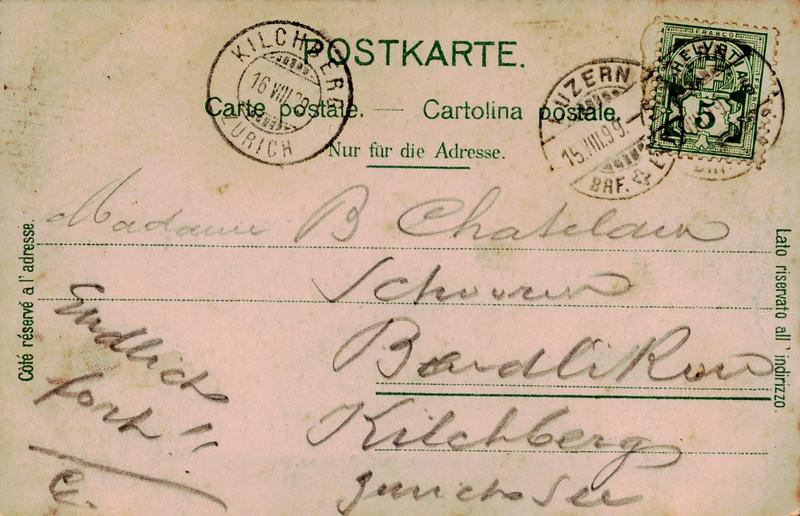 POSTKARTE.
Carte postale. — Cartolina postale.
Nur für die Adresse.
KILCHBERG
16 VIII.99
ZÜRICH
LUZERN
15.VIII.99
BRF.
FRANCO
HELVETIA
5
Côté réservé à l'adresse.
Lato riservato all' indirizzo.
Madame B Chatelain
Schooren
Bendlikon
Kilchberg
Zürichsee
Endlich
fort!!